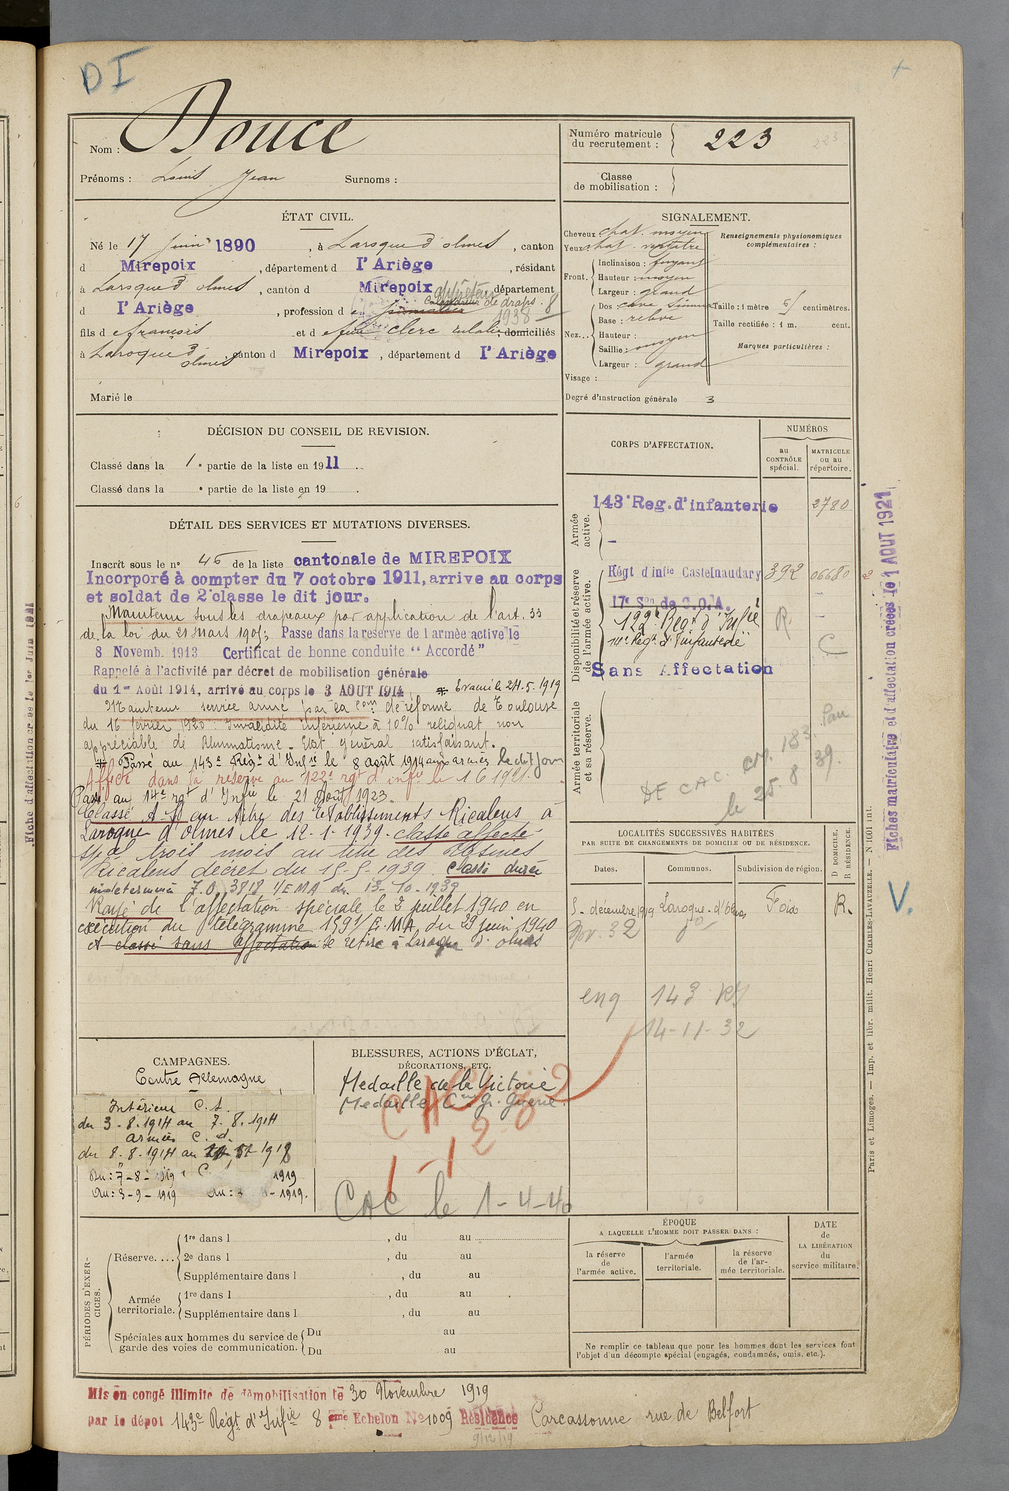 DI
Nom : Douce
Prénoms : Louis Jean Surnoms :
Numéro matricule du recrutement : 223
Classe de mobilisation :
ÉTAT CIVIL.
Né le 17 juin 1890, à Laroque d'olmes, canton
d Mirepoix, département d l'Ariège, résidant
à Laroque d'olmes, canton d Mirepoix, département
d l'Ariège, profession d
de draps. 8
1938
fils d françois et d feue Clerc Eulalie, domiciliés
à Laroque d'olmes, canton d Mirepoix, département d l'Ariège
Marié le
SIGNALEMENT.
Cheveux chat. moyen
Yeux chat.
Front. Inclinaison : fuyant
Hauteur : moyen
Largeur : grand
Nez... Dos : cave
Base : relevé
Hauteur :
Saillie : moyen
Largeur : grand
Visage :
Renseignements physionomiques complémentaires :
Taille : 1 mètre centimètres.
Taille rectifiée : 1 m. cent.
Marques particulières :
Degré d'instruction générale 3
DÉCISION DU CONSEIL DE REVISION.
Classé dans la 1e partie de la liste en 1911
Classé dans la e partie de la liste en 19
DÉTAIL DES SERVICES ET MUTATIONS DIVERSES.
Inscrit sous le n° 46 de la liste cantonale de MIREPOIX
Incorporé à compter du 7 octobre 1911, arrive au corps
et soldat de 2e classe le dit jour.
Maintenu sous les drapeaux par application de l'art. 33
de la loi du 21 Mars 1905; Passe dans la réserve de l'armée active le
8 Novemb. 1913 Certificat de bonne conduite "Accordé"
Rappelé à l'activité par décret de mobilisation générale
du 1er Août 1914, arrivé au corps le 3 AOUT 1914
Maintenu service armé par la Com de réforme de Toulouse
du 16 février 1920 Invalidité inférieure à 10% reliquat non
appréciable de Rhumatisme - Etat général satisfaisant.
Passé au 143e Rég' d'Infie le 8 août 1914 aux armées le dit jour
Affecté dans la réserve au 122e rgt d'infie le 1 6 1921.
Passé au 14e rgt d'Infie le 21 Août 1923.
Classé A. S. au titre des Etablissements Ricalens à
Laroque d'olmes le 12-1-1939. classé affecté
spal trois mois au titre des Usines
Ricalens décret du 15-5-1939 Classé durée
indéterminée 3818 1/EMA du 13-10-1939
Rayé de l'affectation spéciale le 2 juillet 1940 en
exécution du télégramme 1591/E.MA. du 29 juin 1940
et classé sans affectation se retire à Laroque d'olmes
CORPS D'AFFECTATION.
NUMÉROS
au CONTRÔLE spécial.
MATRICULE ou au répertoire.
Armée active.
143e Reg. d'infanterie 2780
Disponibilité et réserve de l'armée active.
Régt d'infie Castelnaudary 392 06680
17e Son de C.O.A.
122e Regt d'Infie R.
14e Regt d'Infanterie C
Sans Affectation
Armée territoriale et sa réserve.
DE CAC. CM. 183.
le 25. 8 39.
Fiches matriculaire et d'affectation créées le 1 AOUT 1921
V.
LOCALITÉS SUCCESSIVES HABITÉES
PAR SUITE DE CHANGEMENTS DE DOMICILE OU DE RÉSIDENCE.
Dates. Communes. Subdivision de région. D DOMICILE, R RÉSIDENCE.
5 - décembre 1919 Laroque-d'Olmes Foix R.
Nov. 32 do
eng 143 RI
14-11-32
CAMPAGNES.
Contre Allemagne
Intérieur C. S.
du 3-8-1914 au 7.8.1914
Armées C. d.
du 8-8-1914 au
1919
BLESSURES, ACTIONS D'ÉCLAT, DÉCORATIONS, ETC.
Medaille de la Victoire
Medaille Cve Gde Guerre.
CAC le 1-4-40
PÉRIODES D'EXERCICES.
Réserve.... 1re dans l , du au
2e dans l , du au
Supplémentaire dans l , du au
Armée territoriale. 1re dans l , du au
Supplémentaire dans l , du au
Spéciales aux hommes du service de garde des voies de communication. Du au
Du au
ÉPOQUE
A LAQUELLE L'HOMME DOIT PASSER DANS :
la réserve de l'armée active.
l'armée territoriale.
la réserve de l'armée territoriale.
DATE de LA LIBÉRATION du service militaire.
Ne remplir ce tableau que pour les hommes dont les services font l'objet d'un décompte spécial (engagés, condamnés, omis, etc.).
Paris et Limoges. — Imp. et libr. milit. Henri CHARLES-LAVAUZELLE. — N° 1001 int.
Mis en congé illimité de démobilisation le 30 Novembre 1919
par le dépot 143e Régt d'Infie 8 ème Echelon No 1009 Résidence Carcassonne rue de Belfort